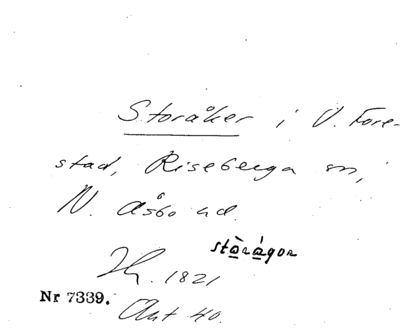 Storåker i V. Fore-
stad, Riseberga sn,
N. Åsbo hd.
stōrågor
1821
Nr 7339. Akt 40.